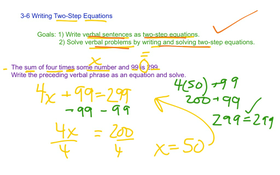 3-6 Writing Two-Step Equations
Goals: 1) Write verbal sentences as two-step equations.
2) Solve verbal problems by writing and solving two-step equations.
x =
The sum of four times some number and 99 is 299.
Write the preceding verbal phrase as an equation and solve.
4x + 99 = 299
-99 -99
4x = 200
4 4
x = 50
4(50) + 99
200 + 99
299 = 299